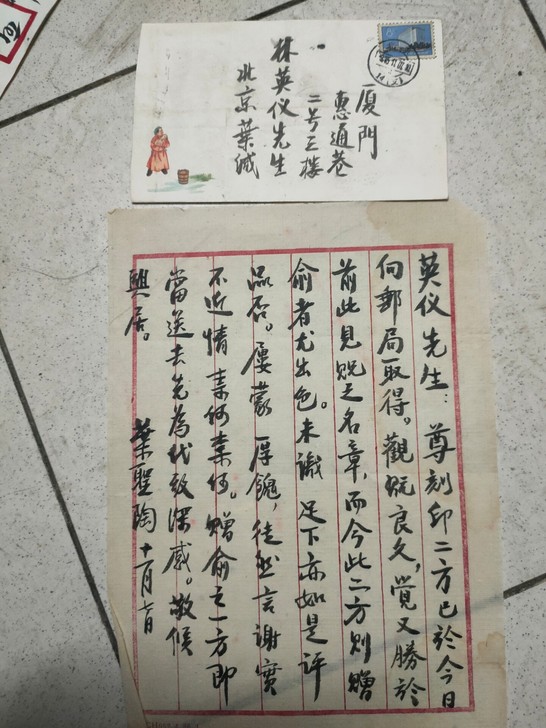 厦門
惠通巷
二号三楼
林英仪先生
北京葉缄
英仪先生：尊刻印二方已於今日
向郵局取得。觀玩良久，覺又勝於
前此見貺之名章，而今此二方则贈
俞者尤出色。未識 足下亦如是評
品否。屢蒙 厚餽，徒然言謝實
不近情，柰何柰何。贈俞之一方即
當送去，先為代致深感。敬候
興居。 葉聖陶 十一月七日